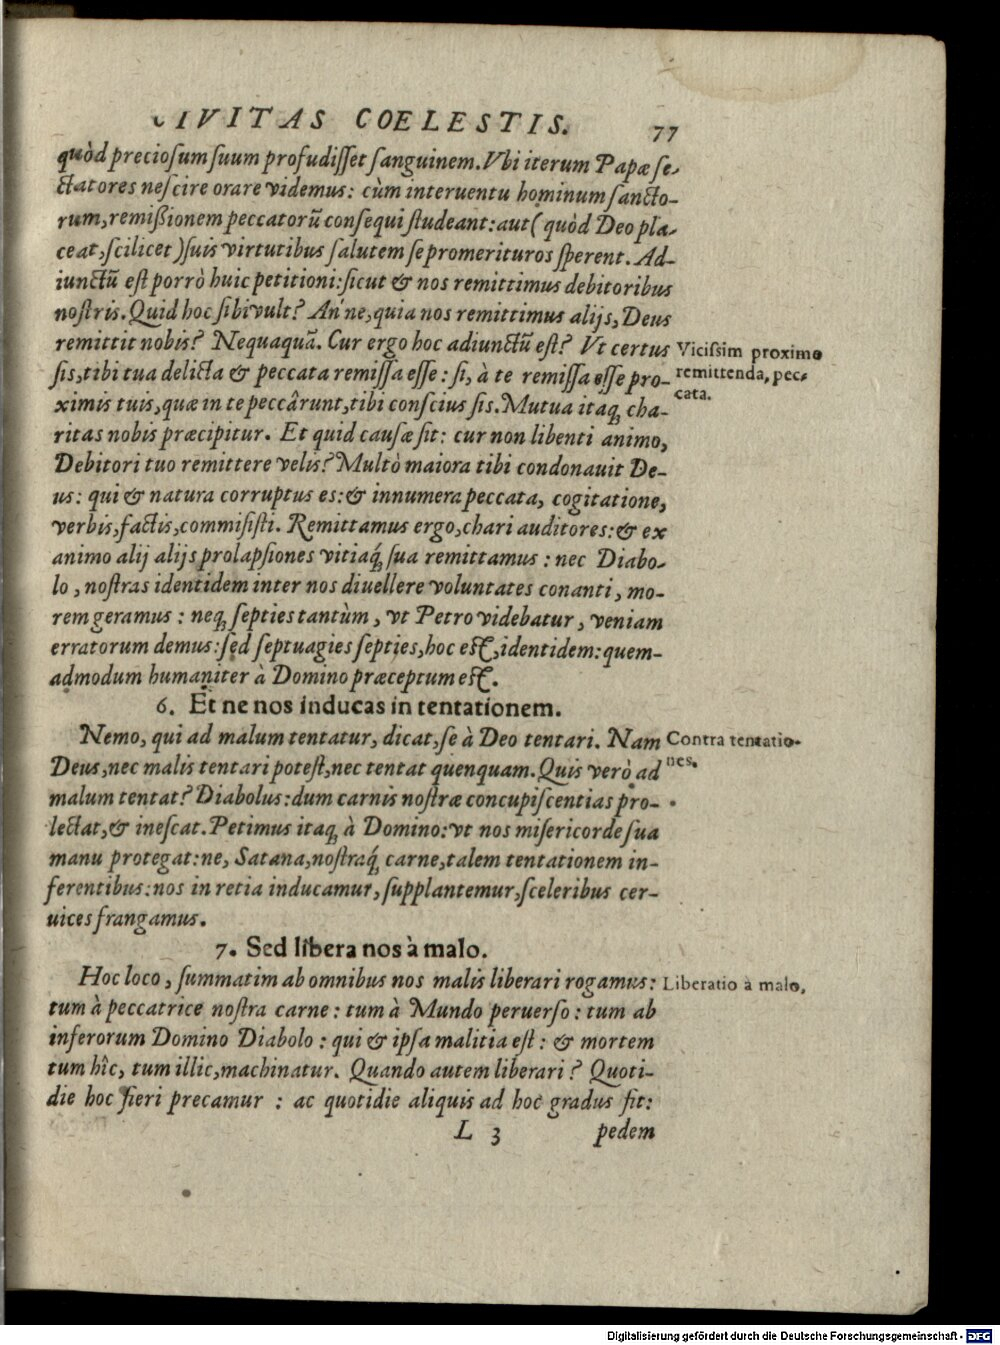 CIVITAS COELESTIS. 77
quòd preciosum suum profudisset sanguinem. Vbi iterum Papæ se-
ctatores nescire orare videmus: cùm interuentu hominum sancto-
rum, remißionem peccatorũ consequi studeant: aut (quòd Deo pla-
ceat, scilicet) suis virtutibus salutem se promerituros sperent. Ad-
iunctũ est porrò huic petitioni: sicut & nos remittimus debitoribus
nostris. Quid hoc sibi vult? An'ne, quia nos remittimus alijs, Deus
remittit nobis? Nequaquã. Cur ergo hoc adiunctũ est? Vt certus
sis, tibi tua delicta & peccata remissa esse: si, à te remissa esse pro-
ximis tuis, quæ in te peccârunt, tibi conscius sis. Mutua itaq; cha-
ritas nobis præcipitur. Et quid causæ sit: cur non libenti animo,
Debitori tuo remittere velis? Multò maiora tibi condonauit De-
us: qui & natura corruptus es: & innumera peccata, cogitatione,
verbis, factis, commisisti. Remittamus ergo, chari auditores: & ex
animo alij alijs prolapsiones vitiaq́; sua remittamus: nec Diabo-
lo, nostras identidem inter nos diuellere voluntates conanti, mo-
rem geramus: neq; septies tantùm, vt Petro videbatur, veniam
erratorum demus: sed septuagies septies, hoc est, identidem: quem-
admodum humaniter à Domino præceptum est.
Vicissim proximo
remittenda, pec-
cata.
6. Et ne nos inducas in tentationem.
Nemo, qui ad malum tentatur, dicat, se à Deo tentari. Nam
Deus, nec malis tentari potest, nec tentat quenquam. Quis verò ad
malum tentat? Diabolus: dum carnis nostræ concupiscentias pro-
lectat, & inescat. Petimus itaq; à Domino: vt nos misericorde sua
manu protegat: ne, Satana, nostraq́; carne, talem tentationem in-
ferentibus: nos in retia inducamur, supplantemur, sceleribus cer-
uices frangamus.
Contra tentatio-
nes.
7. Sed libera nos à malo.
Hoc loco, summatim ab omnibus nos malis liberari rogamus:
tum à peccatrice nostra carne: tum à Mundo peruerso: tum ab
inferorum Domino Diabolo: qui & ipsa malitia est: & mortem
tum hîc, tum illic, machinatur. Quando autem liberari? Quoti-
die hoc fieri precamur: ac quotidie aliquis ad hoc gradus fit:
Liberatio à malo,
L 3 pedem
Digitalisierung gefördert durch die Deutsche Forschungsgemeinschaft - DFG